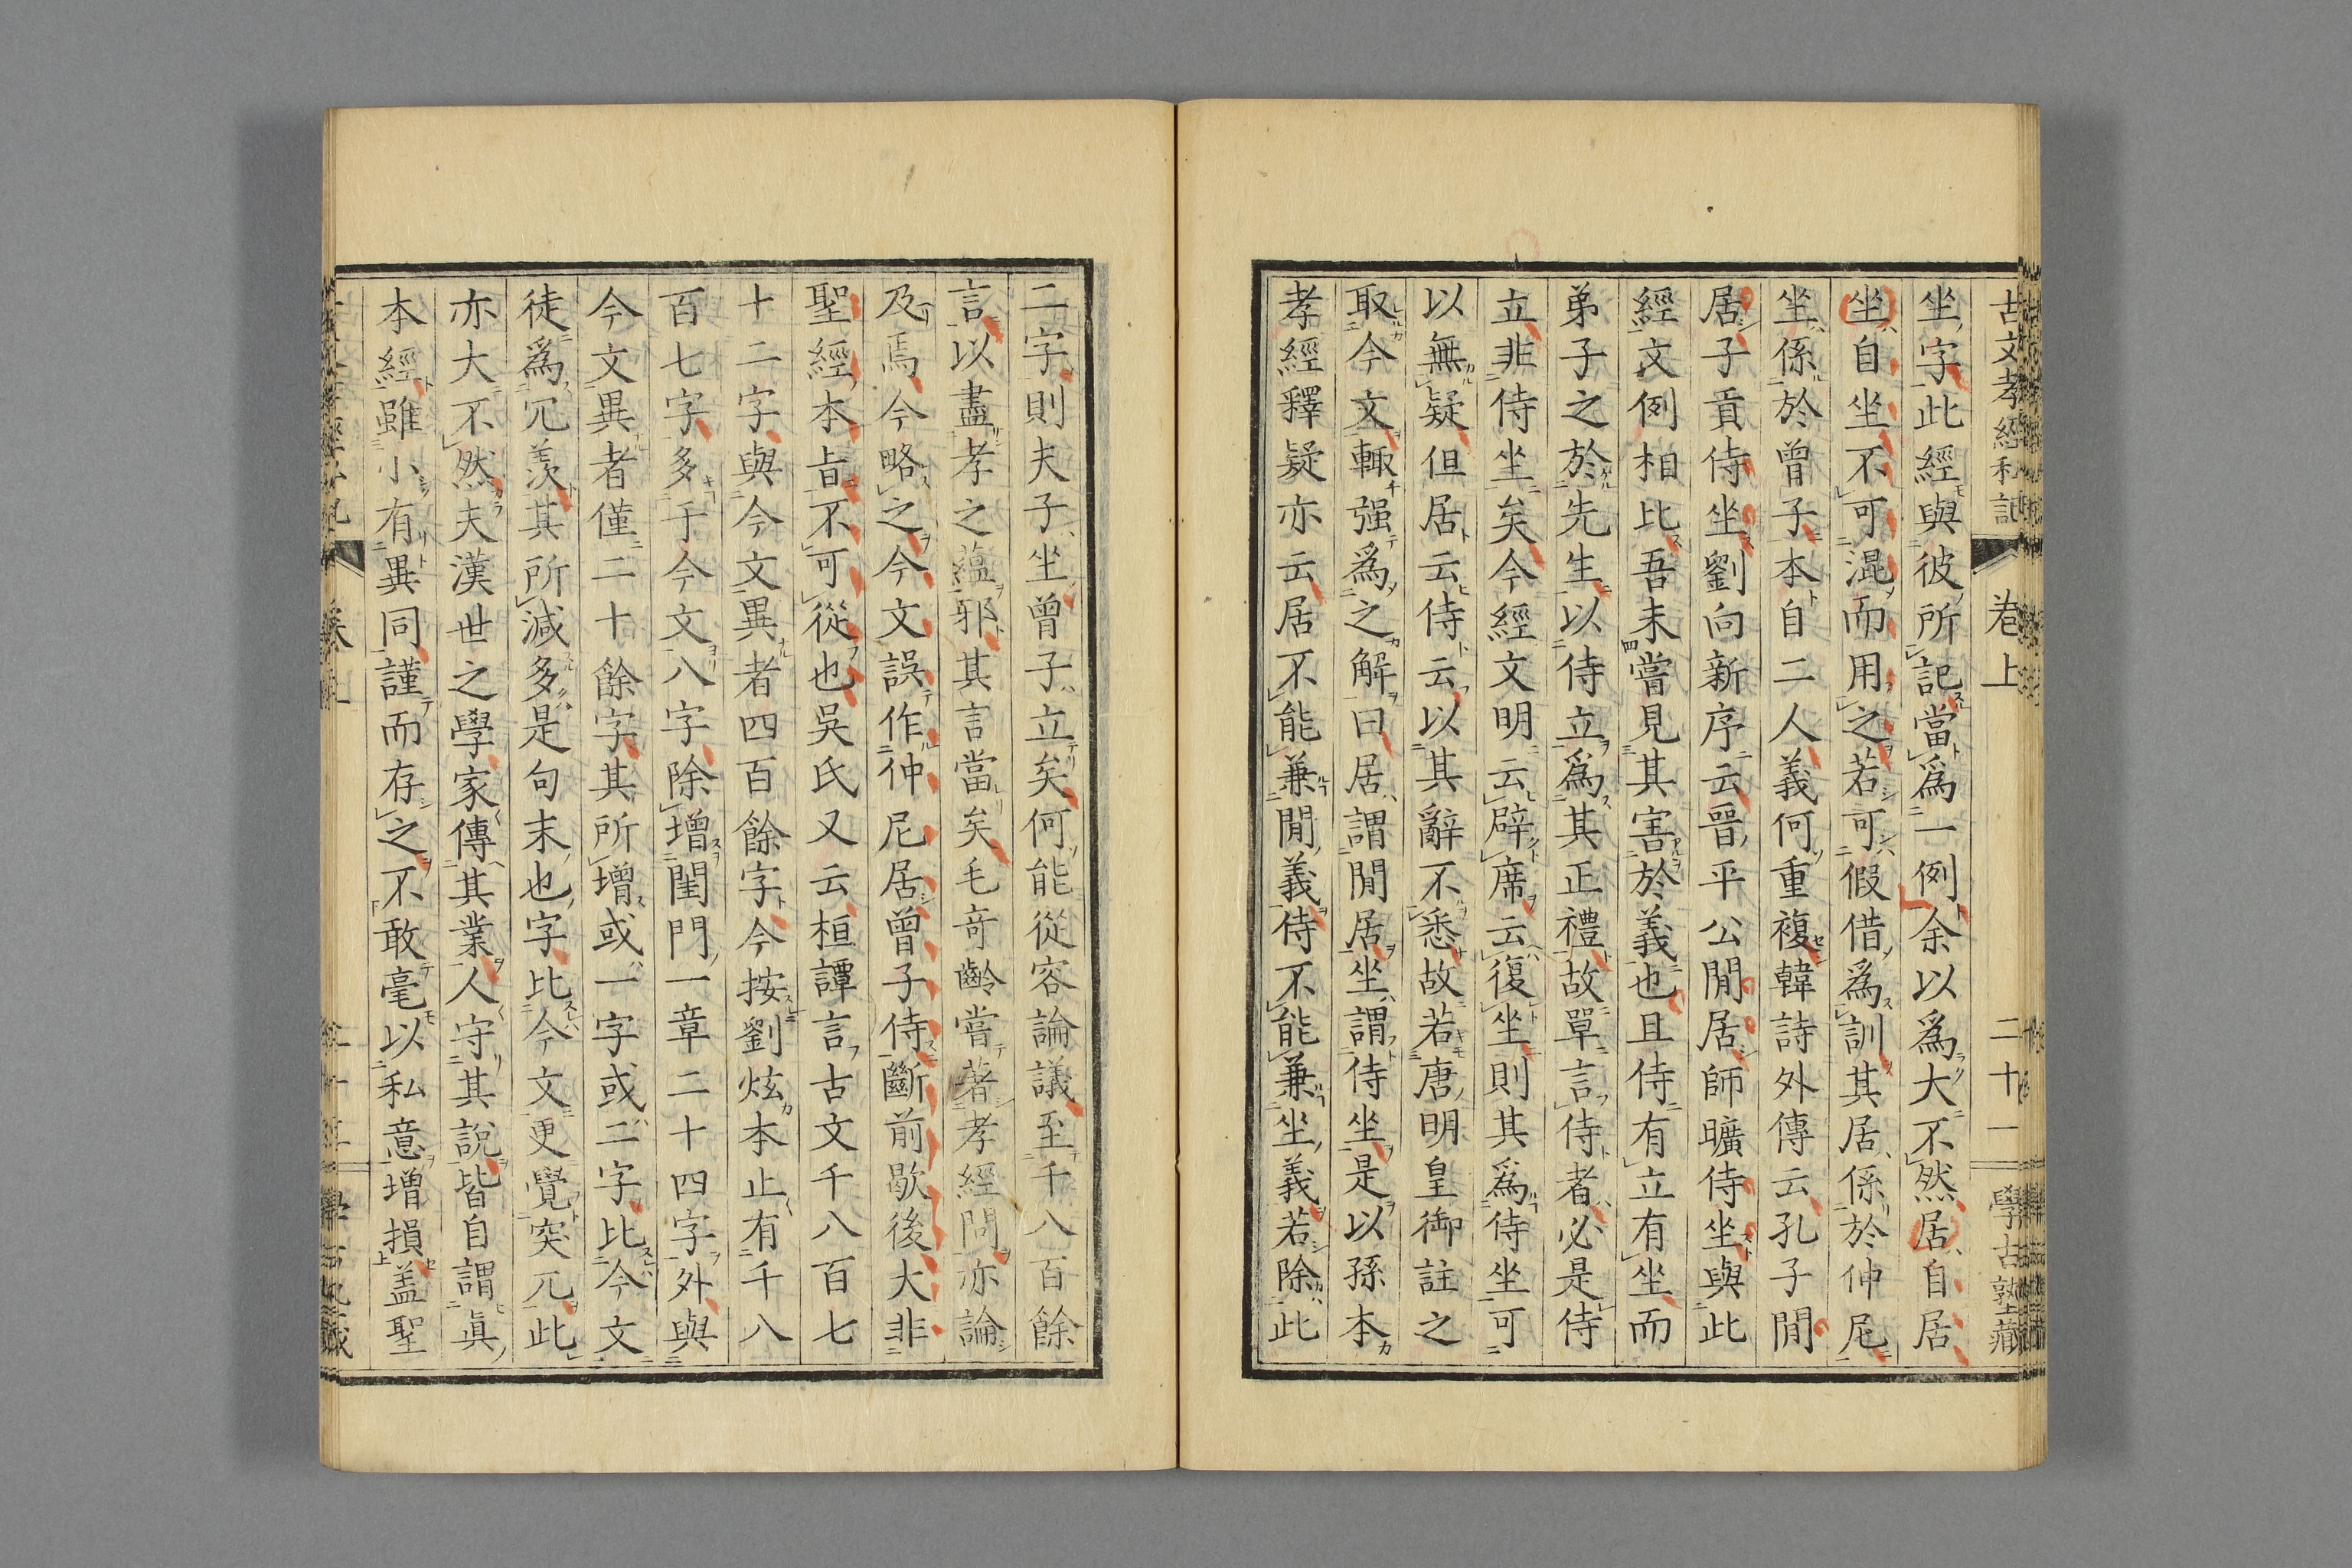 古文孝經私記 卷上 二十一 學古塾藏
坐字此經與彼所記當爲一例余以爲大不然居自居
坐自坐不可混而用之若可假借爲訓其居係於仲尼
坐係於曾子本自二人義何重複韓詩外傳云孔子閒
居子貢侍坐劉向新序云晉平公閒居師曠侍坐與此
經文例相比吾未嘗見其害於義也且侍有立有坐而
弟子之於先生以侍立爲其正禮故單言侍者必是侍
立非侍坐矣今經文明云辟席云復坐則其爲侍坐可
以無疑但居云侍云以其辭不悉故若唐明皇御註之
取今文輙强爲之解曰居謂閒居坐謂侍坐是以孫本
孝經釋疑亦云居不能兼閒義侍不能兼坐義若除此
二字則夫子坐曾子立矣何能從容論議至千八百餘
言以盡孝之蘊邪其言當矣毛奇齡嘗著孝經問亦論
及焉今略之今文誤作仲尼居曾子侍斷前歇後大非
聖經本旨不可從也吳氏又云桓譚言古文千八百七
十二字與今文異者四百餘字今按劉炫本止有千八
百七字多于今文八字除增閨門一章二十四字外與
今文異者僅二十餘字其所增或一字或二字比今文
徒爲冗羨其所減多是句末也字比今文更覺突兀此
亦大不然夫漢世之學家傳其業人守其說皆自謂眞
本經雖小有異同謹而存之不敢毫以私意增損盖聖